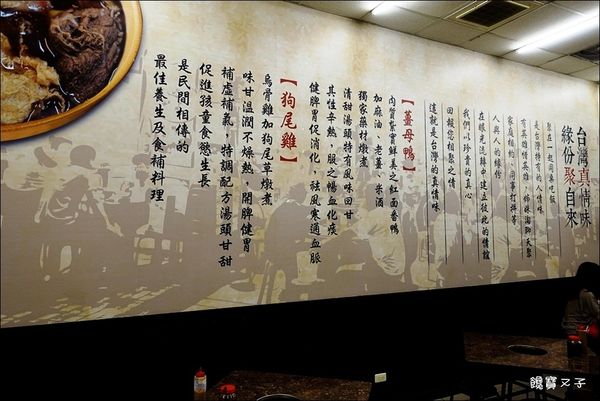 台灣真情味
緣份聚自來
聚在一起同桌吃飯
是台灣特有的人情味
有英雄惜英雄，姊妹淘聊天聚
家庭相約，同事打拼等
人與人的緣份
在眼光流轉中建立彼此的情誼
我們以珍貴的真心
回報您相聚之情
這就是台灣的真情味
【薑母鴨】
肉質紮實鮮美之紅面番鴨
加麻油、老薑、米酒
獨家藥材燉煮
清甜湯頭特有風味回甘
其性辛熱，服之暢血化痰
健脾胃促消化，祛風寒通血脈
【狗尾雞】
烏骨雞加狗尾草燉煮
味甘溫潤不燥熱，開脾健胃
補虛補氣，特調配方湯頭甘甜
促進孩童食慾生長
是民間相傳的
最佳養生及食補料理
饞寶又子